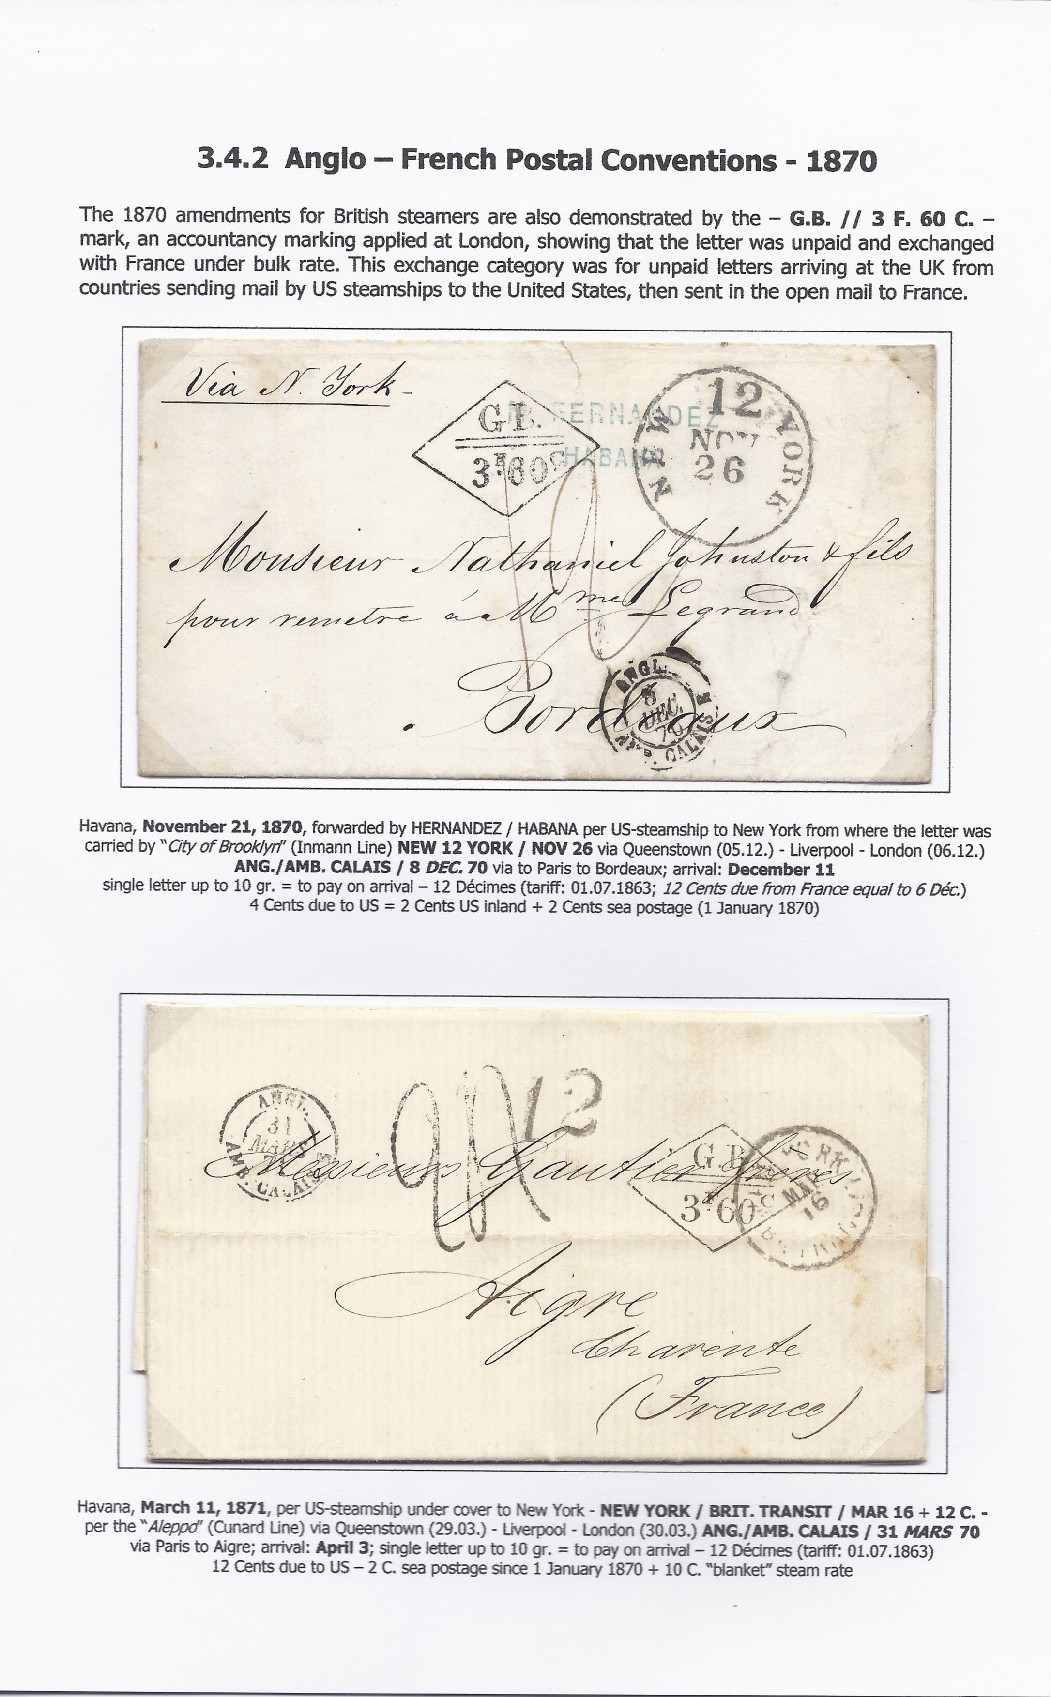 3.4.2 Anglo – French Postal Conventions - 1870
The 1870 amendments for British steamers are also demonstrated by the – G.B. // 3 F. 60 C. –
mark, an accountancy marking applied at London, showing that the letter was unpaid and exchanged
with France under bulk rate. This exchange category was for unpaid letters arriving at the UK from
countries sending mail by US steamships to the United States, then sent in the open mail to France.
Via N. York -
G B.
3F 60C
FERNANDEZ
HABANA
NEW YORK
12
NOV
26
Monsieur Nathaniel Johnston & fils
pour remetre á Mme Legrand
Bordeaux
ANGL.
8
DEC.
70
CALAIS
Havana, November 21, 1870, forwarded by HERNANDEZ / HABANA per US-steamship to New York from where the letter was
carried by "City of Brooklyn" (Inmann Line) NEW 12 YORK / NOV 26 via Queenstown (05.12.) - Liverpool - London (06.12.)
ANG./AMB. CALAIS / 8 DEC. 70 via to Paris to Bordeaux; arrival: December 11
single letter up to 10 gr. = to pay on arrival – 12 Décimes (tariff: 01.07.1863; 12 Cents due from France equal to 6 Déc.)
4 Cents due to US = 2 Cents US inland + 2 Cents sea postage (1 January 1870)
12
ANGL.
31
MARS
AMB. CALAIS
G B
3F 60C
YORK
MAR
16
Messieurs Gautier frères
Aigre
Charente
(France)
Havana, March 11, 1871, per US-steamship under cover to New York - NEW YORK / BRIT. TRANSIT / MAR 16 + 12 C. -
per the "Aleppo" (Cunard Line) via Queenstown (29.03.) - Liverpool - London (30.03.) ANG./AMB. CALAIS / 31 MARS 70
via Paris to Aigre; arrival: April 3; single letter up to 10 gr. = to pay on arrival – 12 Décimes (tariff: 01.07.1863)
12 Cents due to US – 2 C. sea postage since 1 January 1870 + 10 C. "blanket" steam rate